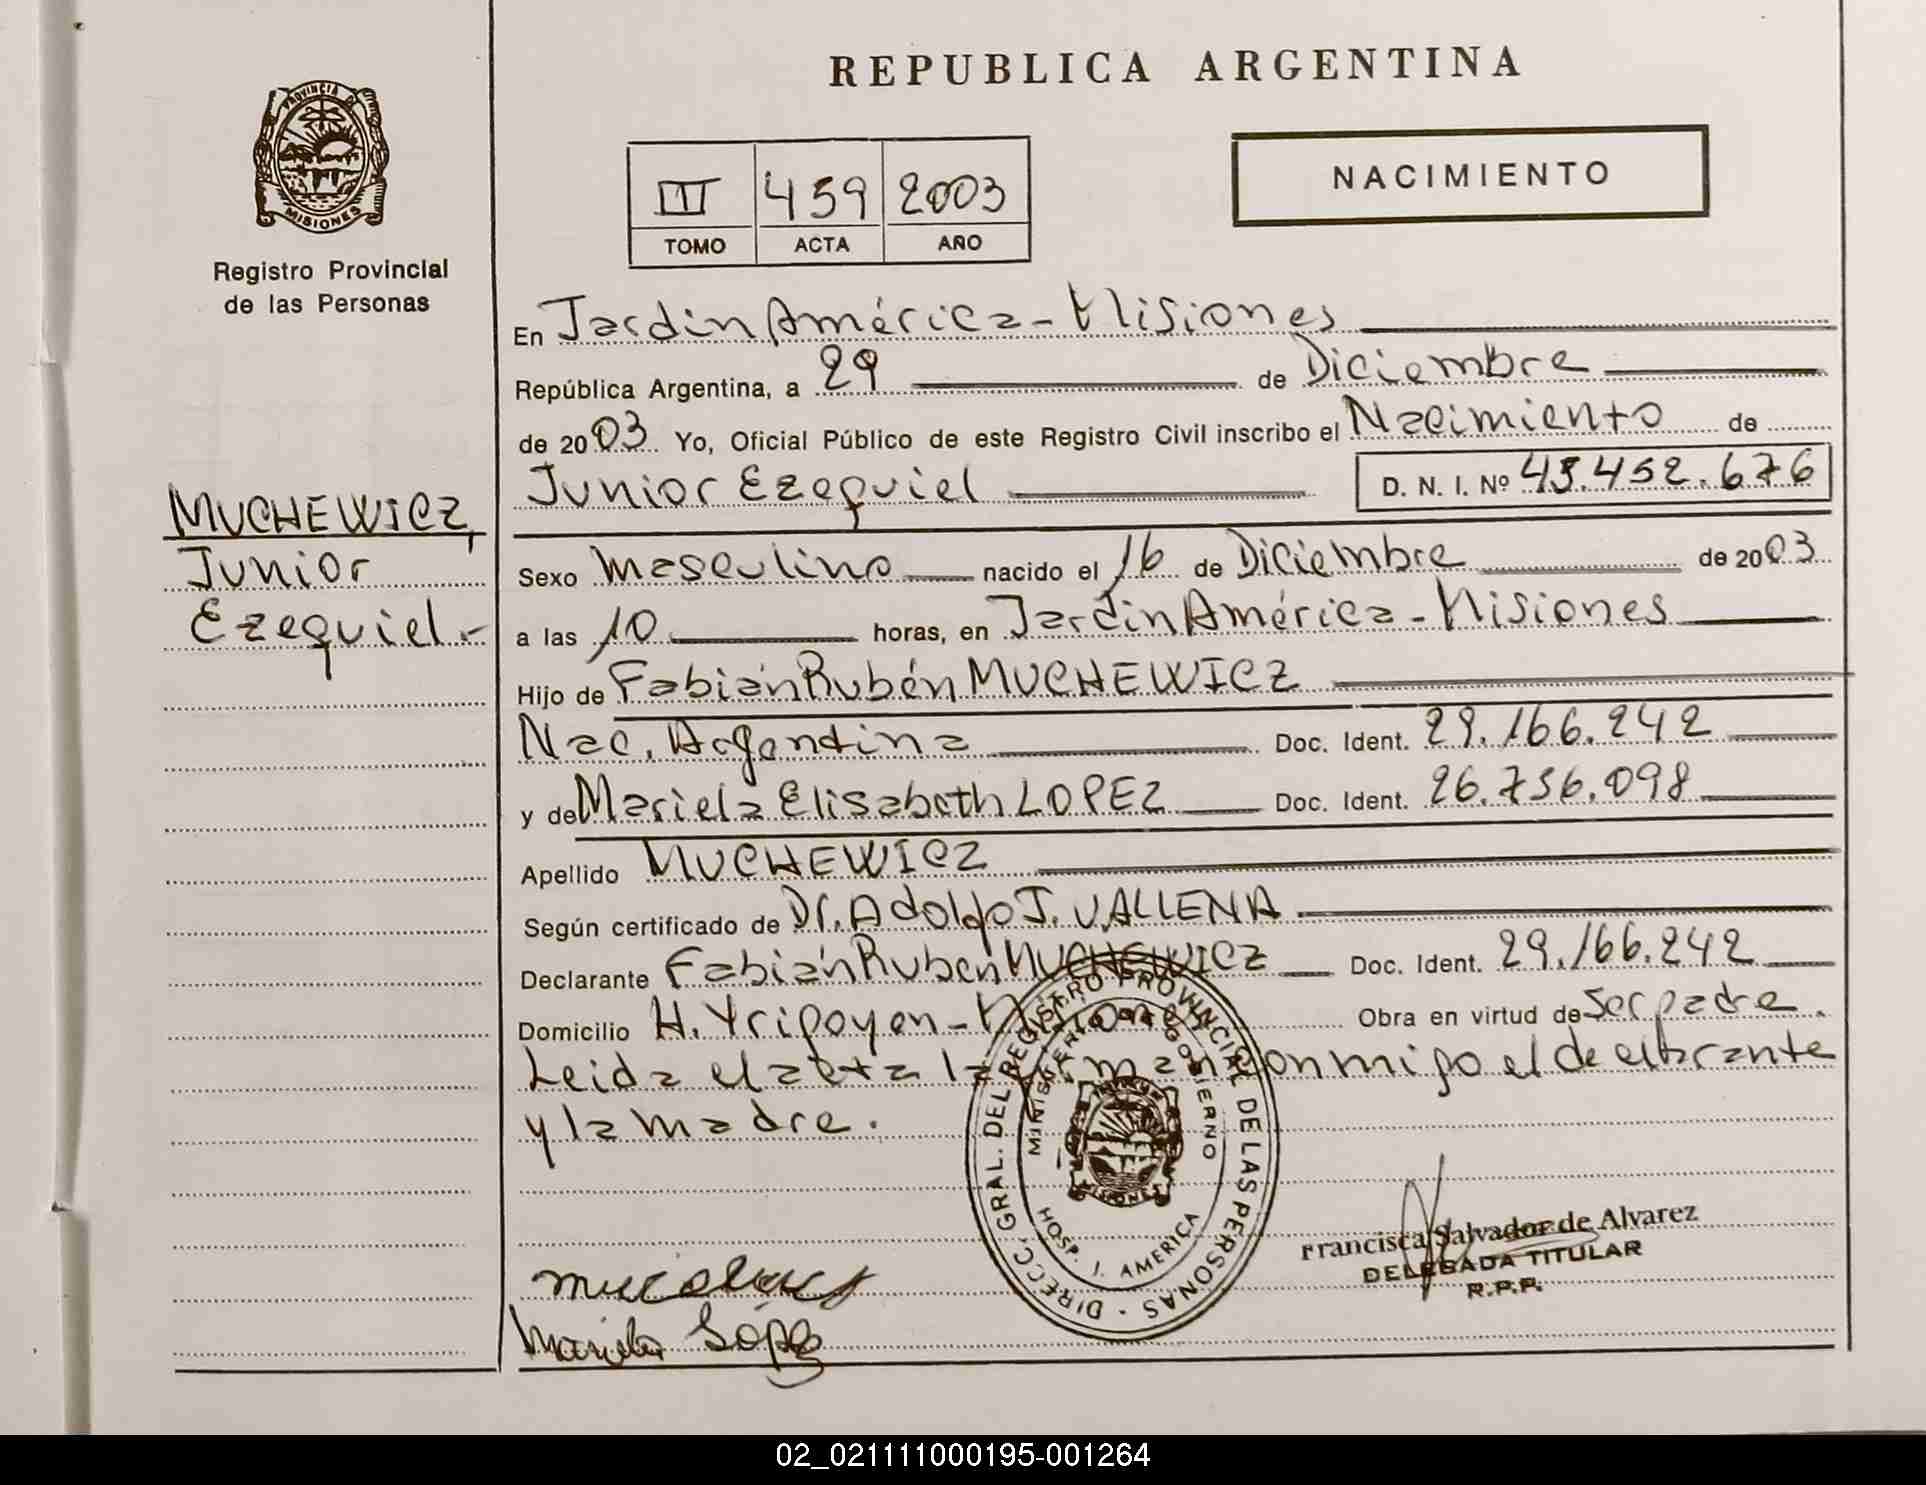 REPUBLICA ARGENTINA
PROVINCIA DE
MISIONES
Registro Provincial
de las Personas
III 459 2003
TOMO ACTA AÑO
NACIMIENTO
En Jardin América - Misiones
República Argentina, a 29 de Diciembre
de 2003. Yo, Oficial Público de este Registro Civil inscribo el Nacimiento de
Junior Ezequiel D. N. I. Nº 45.452.676
MUCHEWICZ,
Junior
Ezequiel.-
Sexo masculino nacido el 16 de Diciembre de 2003
a las 10 horas, en Jardin América - Misiones
Hijo de Fabián Rubén MUCHEWICZ
Nac. Argentina Doc. Ident. 29.166.242
y de Mariela Elisabeth LOPEZ Doc. Ident. 26.736.098
Apellido MUCHEWICZ
Según certificado de Dr. Adolfo J. VALLENA
Declarante Fabián Ruben MUCHEWICZ Doc. Ident. 29.166.242
Domicilio H. Yrigoyen - Misiones Obra en virtud de Ser padre.
Leida el acta la firman conmigo el declarante
y la madre.
DIRECC. GRAL. DEL REGISTRO PROVINCIAL DE LAS PERSONAS
MINISTERIO DE GOBIERNO
MISIONES
HOSP. J. AMERICA
Francisca Salvador de Alvarez
DELEGADA TITULAR
R.P.P.
Mariela Lopez
02_021111000195-001264